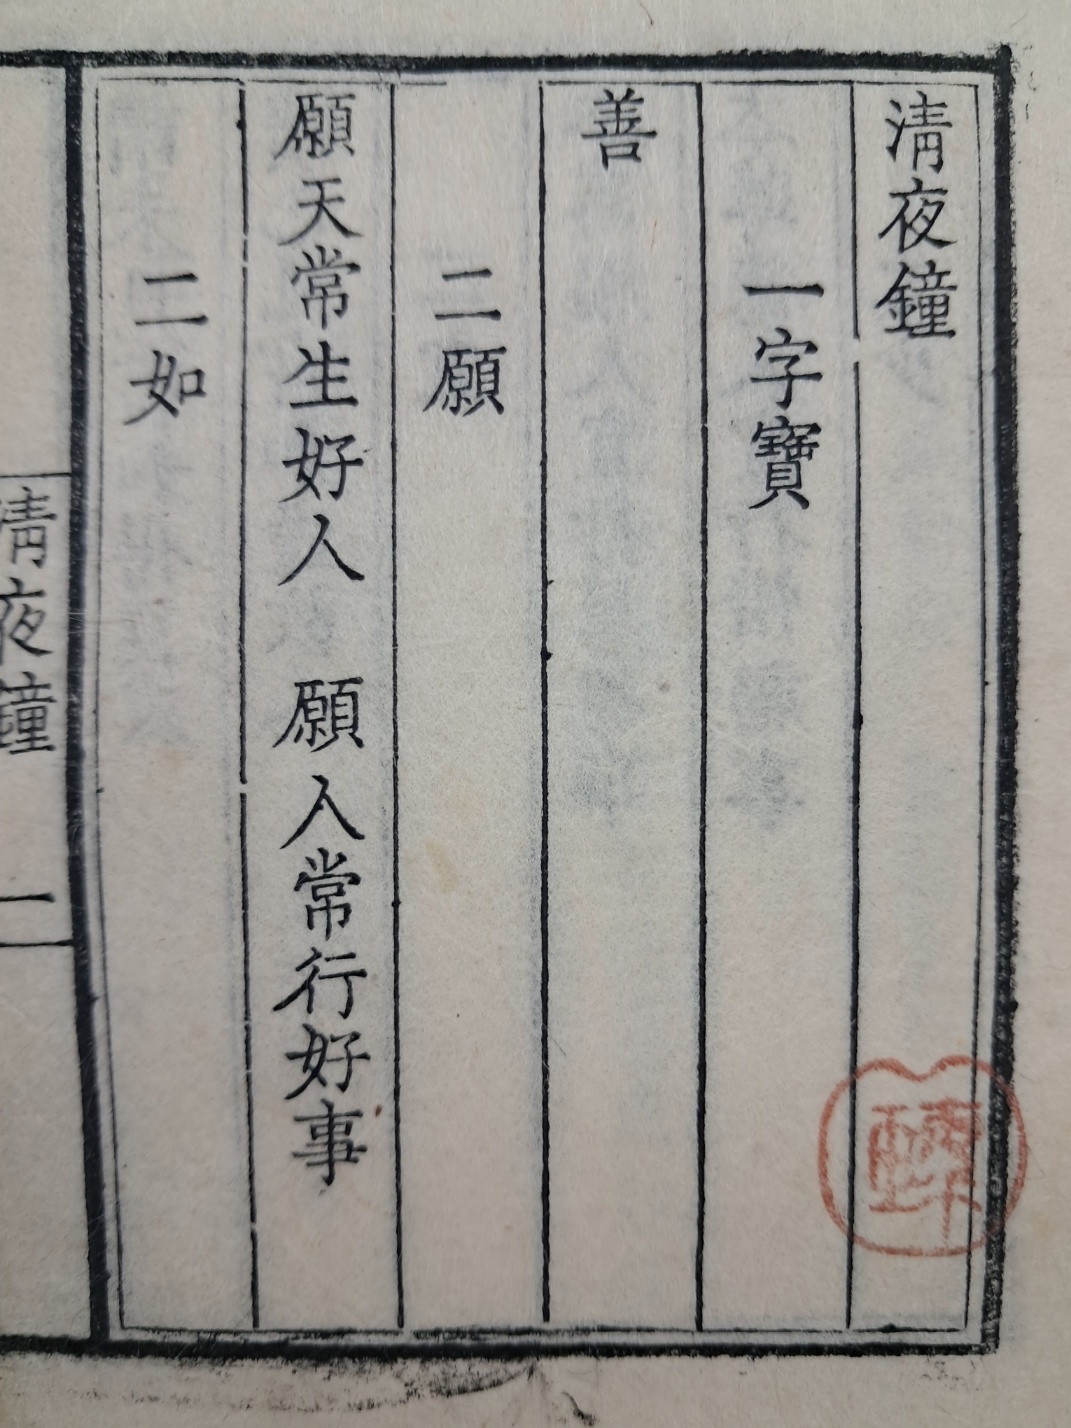 清夜鐘
一字寶
善
二願
願天常生好人　願人常行好事
二如
清夜鐘
一